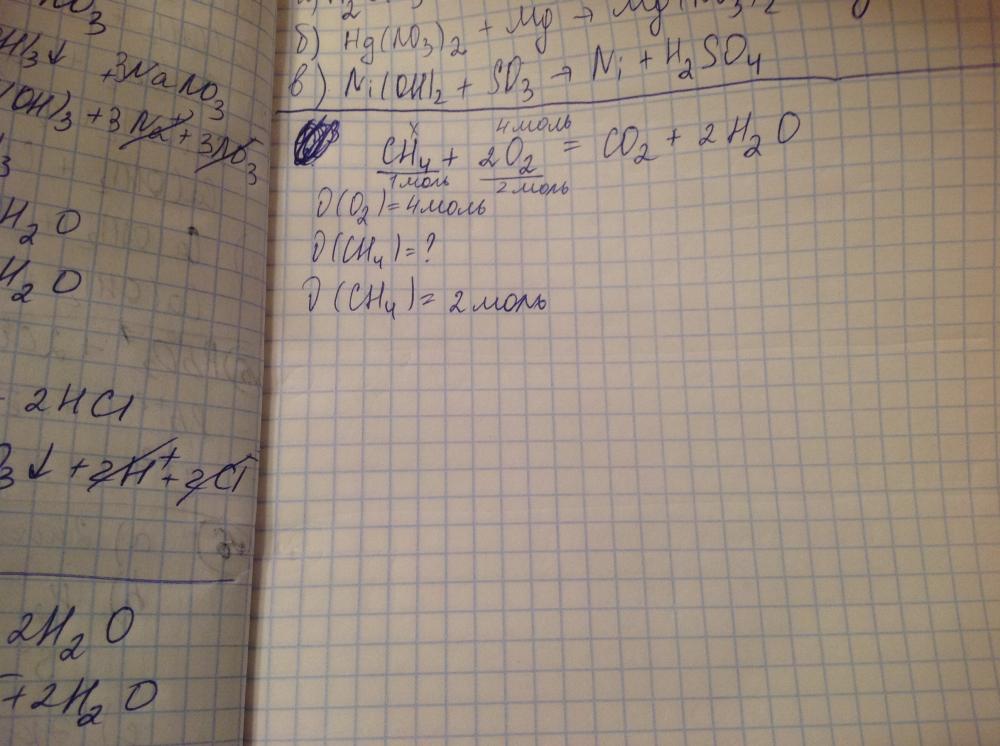 NO3
H3↓ + 3NaNO3
(OH)3 + 3Na+ + 3NO3
H2O
H2O
2HCl
3↓ + 2H+ + 2Cl
2H2O
+ 2H2O
б) Hg(NO3)2 + Mg → Mg(NO3)2
в) Ni(OH)2 + SO3 → Ni + H2SO4
x 4 моль
CH4 + 2O2 = CO2 + 2H2O
1 моль 2 моль
υ(O2) = 4 моль
υ(CH4) = ?
υ(CH4) = 2 моль